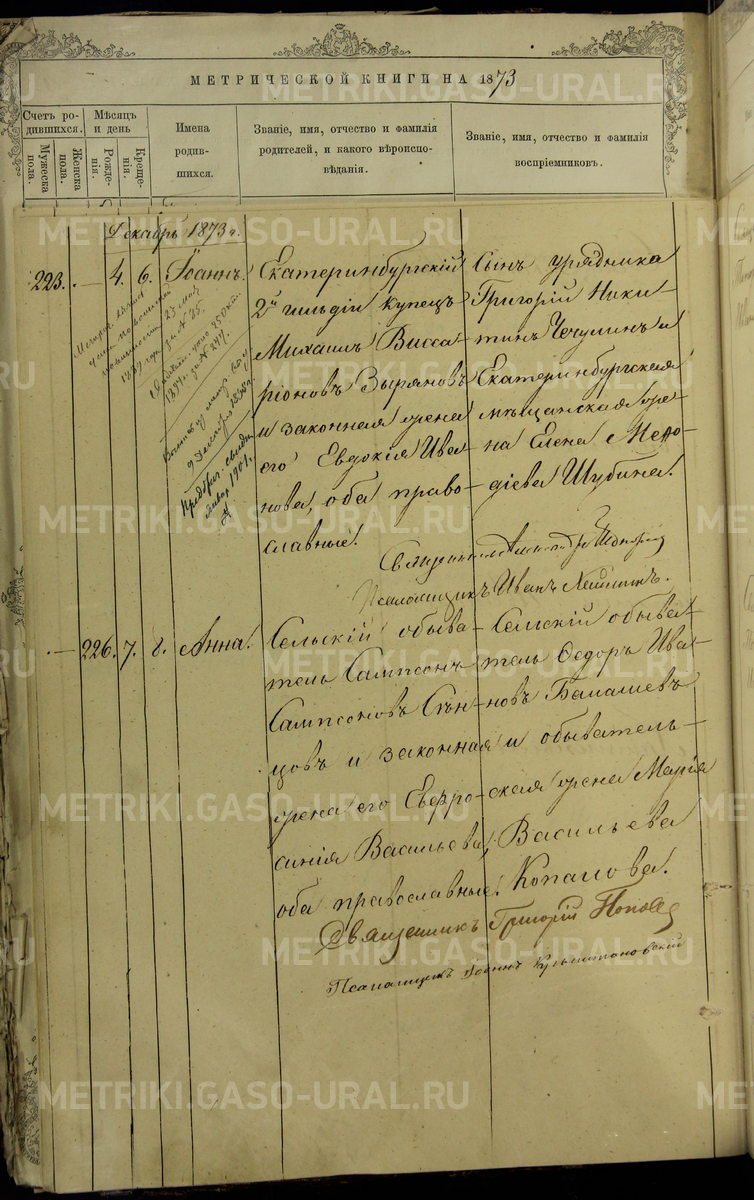 МЕТРИЧЕСКОЙ КНИГИ НА 1873
Счетъ ро-
дившихся.
Мужеска
пола.
Женска
пола.
Мѣсяцъ
и день
Рожде-
нія.
Креще-
нія.
Имена
родив-
шихся.
Званіе, имя, отчество и фамилія
родителей, и какого вѣроиспо-
вѣданія.
Званіе, имя, отчество и фамилія
воспріемниковъ.
Декабрь 1873 г.
223. — 4. 6. Іоаннъ.
Екатеринбургскій
2й гильдіи купецъ
Михаилъ Висса-
ріоновъ Зыряновъ
и законная жена
его Евдокія Ива-
нова, оба право-
славные.
Сынъ урядника
Григорій Ники-
тинъ Чечулинъ и
Екатеринбургская
мѣщанская же-
на Елена Меѳо-
діева Шубина.
Псаломщикъ Иванъ
— 226. 7. 8. Анна.
Сельскій обыва-
тель Сампсонъ
Сампсоновъ Сѣн-
цовъ и законная
жена его Евфро-
синія Васильева,
оба православные.
Сельскій обыва-
тель Ѳедоръ Ива-
новъ Балашевъ
и обыватель-
ская жена Марія
Васильева
Копалова.
Священникъ Григорій Поповъ
Псаломщикъ Іоаннъ
METRIKI.GASO-URAL.RU